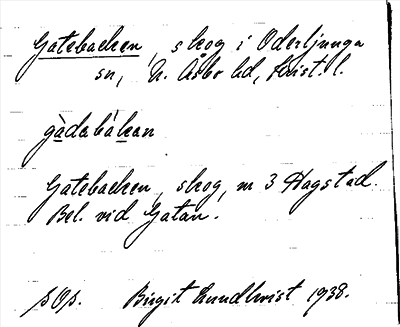 Gatebacken, skog i Oderljunga
sn, N. Åsbo hd, Krist. l.
gàdabàkan
Gatebacken, skog, nr 3 Hagstad.
Bel. vid Gatan.
sOs. Birgit Lundkvist 1938.